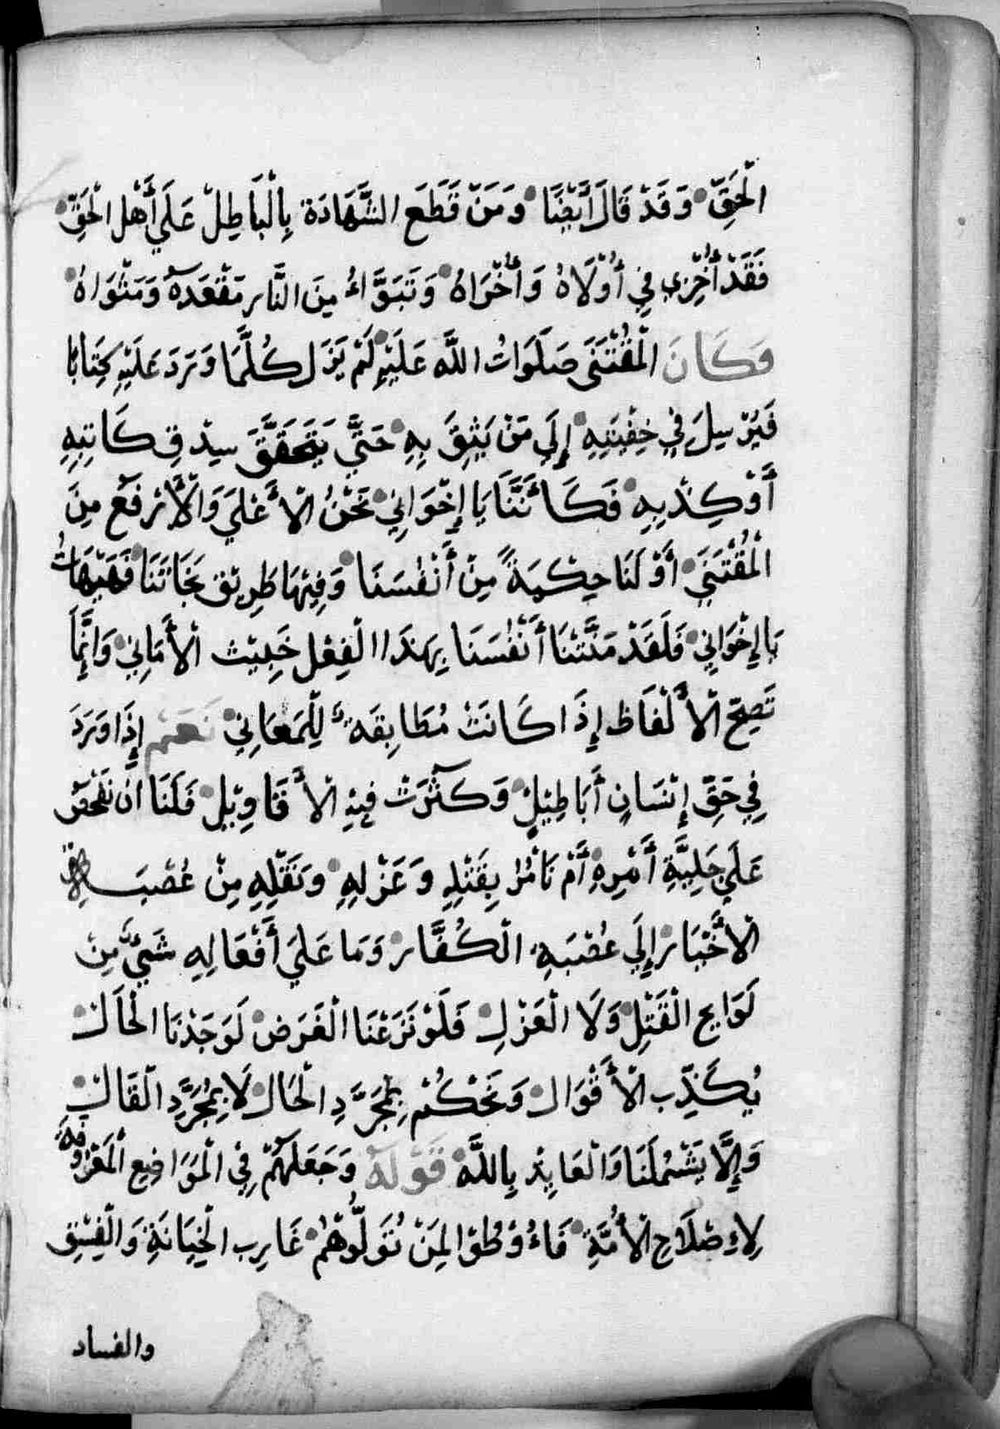 الْحَقِّ وَقَدْ قَالَ أَيْضًا وَمَنْ قَطَعَ الشَّهَادَة بِالْبَاطِلْ عَلَى أَهْلِ الْحَقِّ
فَقَدْ أُخْزِي فِي أُوْلَاهُ وَأُخْرَاهُ وَتَبَوَّاءُ مِنَ النَّارِ مَقْعَدَهُ وَمَثْوَاهُ
وَكَانَ الْمُقْتَنَى صَلَوَاتُ اللَّه عَلَيْهِ لَمْ يَزَل كُلَّمَا وَرَدَ عَلَيْهِ كِتَابًا
فَيُرْسِلَ فِي خِفْيَتِهِ إِلَى مَنْ يَثِقَ بِهِ حَتَّى يَتَحَقَّقَ سِدْقِ كَاتِبِهِ
أَوْ كِذْبِهِ فَكَأَنَّنَا يَا إِخْوَانِي نَحْنُ الْأَعْلَى وَالْأَرْفَعُ مِنَ
الْمُقْتَنَى أَوْ لَنَا حِكْمَةً مِنْ أَنْفُسَنَا وَفِيْهَا طَرِيْق نَجَاتَنَا فَهَيْهَاتُ
يَا إِخْوَانِي فَلَقَدْ مَنَّتْنَا أَنْفُسَنَا بِهَذَا الْفِعْل خَبِيْث الْأَمَانِي وَإِنَّمَا
تَصِحّ الْأَلْفَاظ إِذَا كَانَتْ مُطَابِقَه لِلْمَعَانِي نَعَمْ إِذَا وَرَدَ
فِي حَقِّ إِنْسَانٍ أَبَاطِيْلٍ وَكَثُرَتْ فِيْهِ الْأَقَاوِيْلِ فَلَنَا ان نَفْحَصْ
عَلَى جَلِيَّةِ أَمْرِهِ أَمْ نَأْمُرْ بِقَتْلِهِ وَعَزْلِهِ وَنَقْلِهِ مِنْ عُصْبَةِ
الْأَخْيَارْ إِلَى عُصْبَهِ الْكُفَّارْ وَمَا عَلَى أَفْعَالِهِ شَيْءٌ مِنْ
لَوَايح الْقَتْلِ وَلَا الْعَزْلِ فَلَوْ نَزَعْنَا الْغَرَضْ لَوَجَدْنَا الْحَالْ
يُكَذِّب الْأَقْوَالْ وَنَحْكُمْ بِمُجَرَّدِ الْحَالْ لَا بِمُجَرَّدِ الْقَالْ
وَإِلَّا يَشْمُلَنَا وَالْعَايِذ بِاللَّهْ قَوْلَهُ وَجَعَلَهُمْ فِي الْمَوَاضِعِ الْمَعْرُوفَةِ
لِإِصْلَاحِ الْأُمَّةِ فَاءُوْطُوْا لِمَنْ تُوَلُّوْهُمْ غَارِب الْخِيَانَةِ وَالْفِسْقِ
والفساد